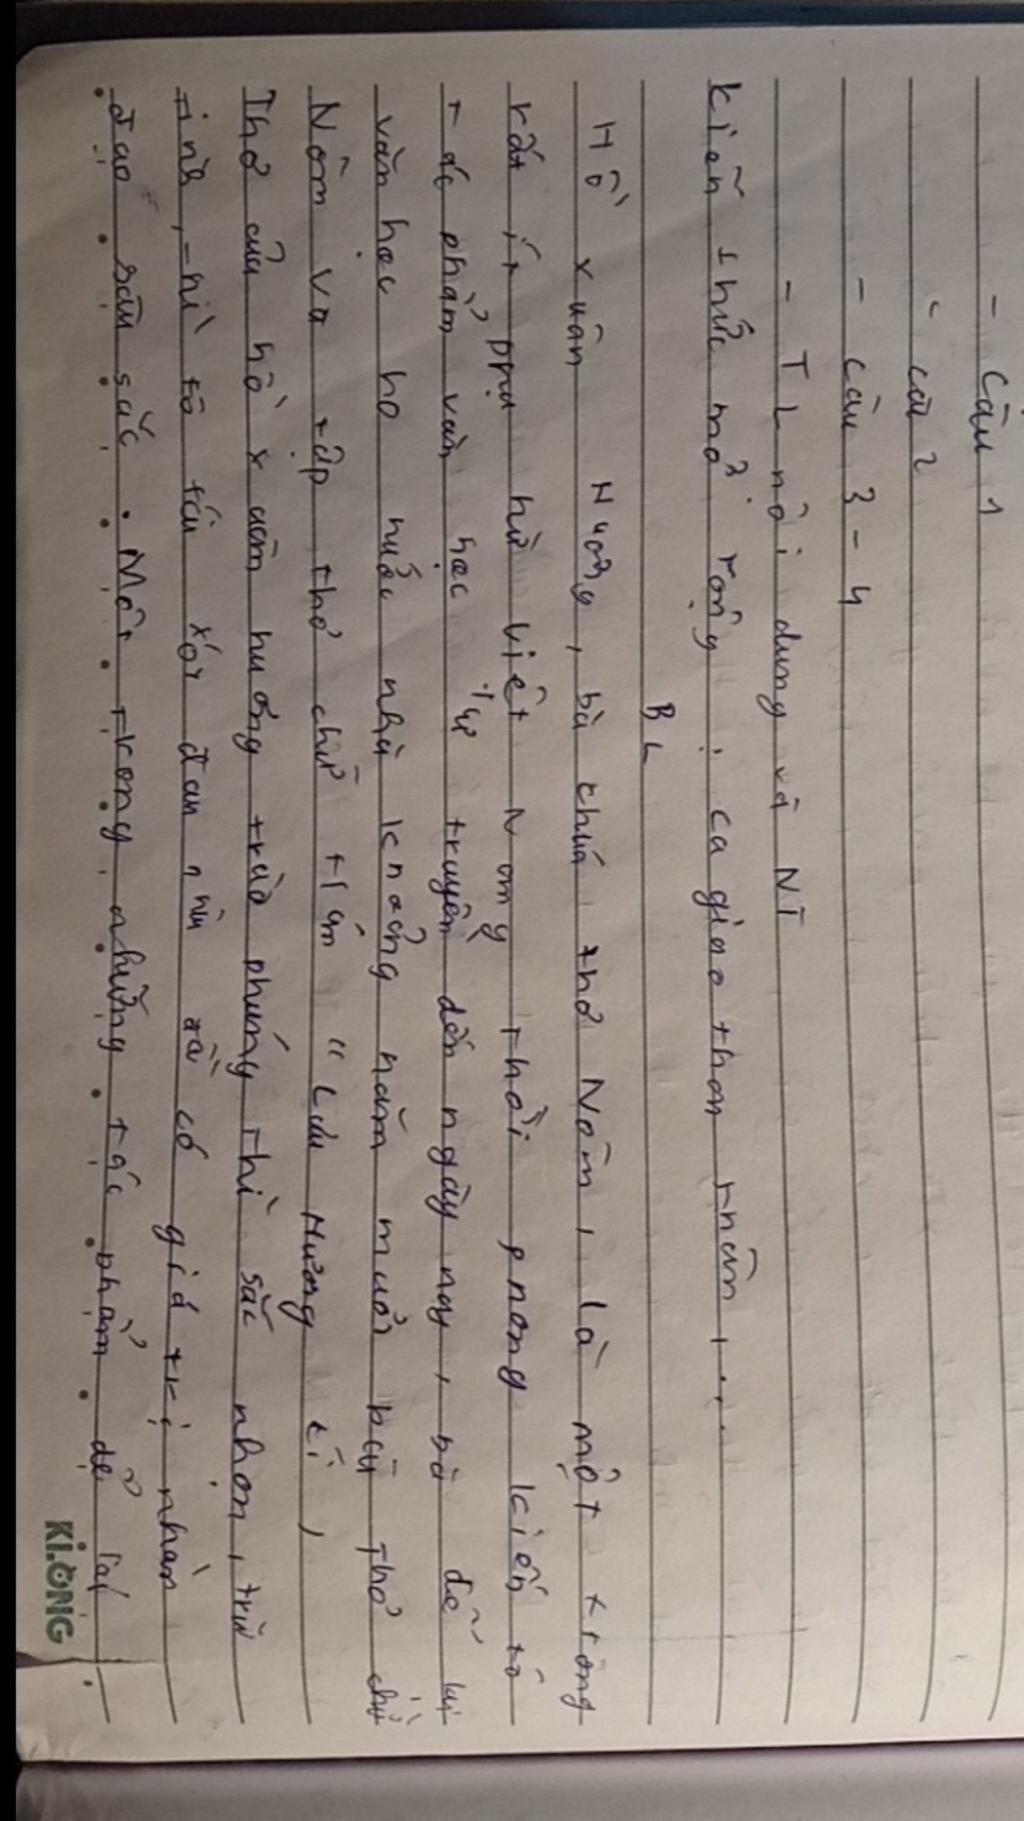 - Câu 1
- câu 2
- câu 3 - 4
- TL nội dung và NT
kiến thức mở rộng : ca giao than thân, ...
BL
Hồ xuân Hương, bà chúa thơ Nôm, là một trong
rất ít phụ hữ việt Nam thời phong kiến
tác phẩm văn học truyền đến ngày nay, bà để lại
văn học ho nước nhà khoảng năm mươi bài Thơ chữ
Nôm va tập thơ chữ Hán " Lưu Hương kí,
Thơ của hồ xuân hương trào phúng thì sắc nhọn, trữ
tình, thì xót và có giá trị nhân
đạo sâu sắc. Một trong những tác phẩm để lại
KLONG